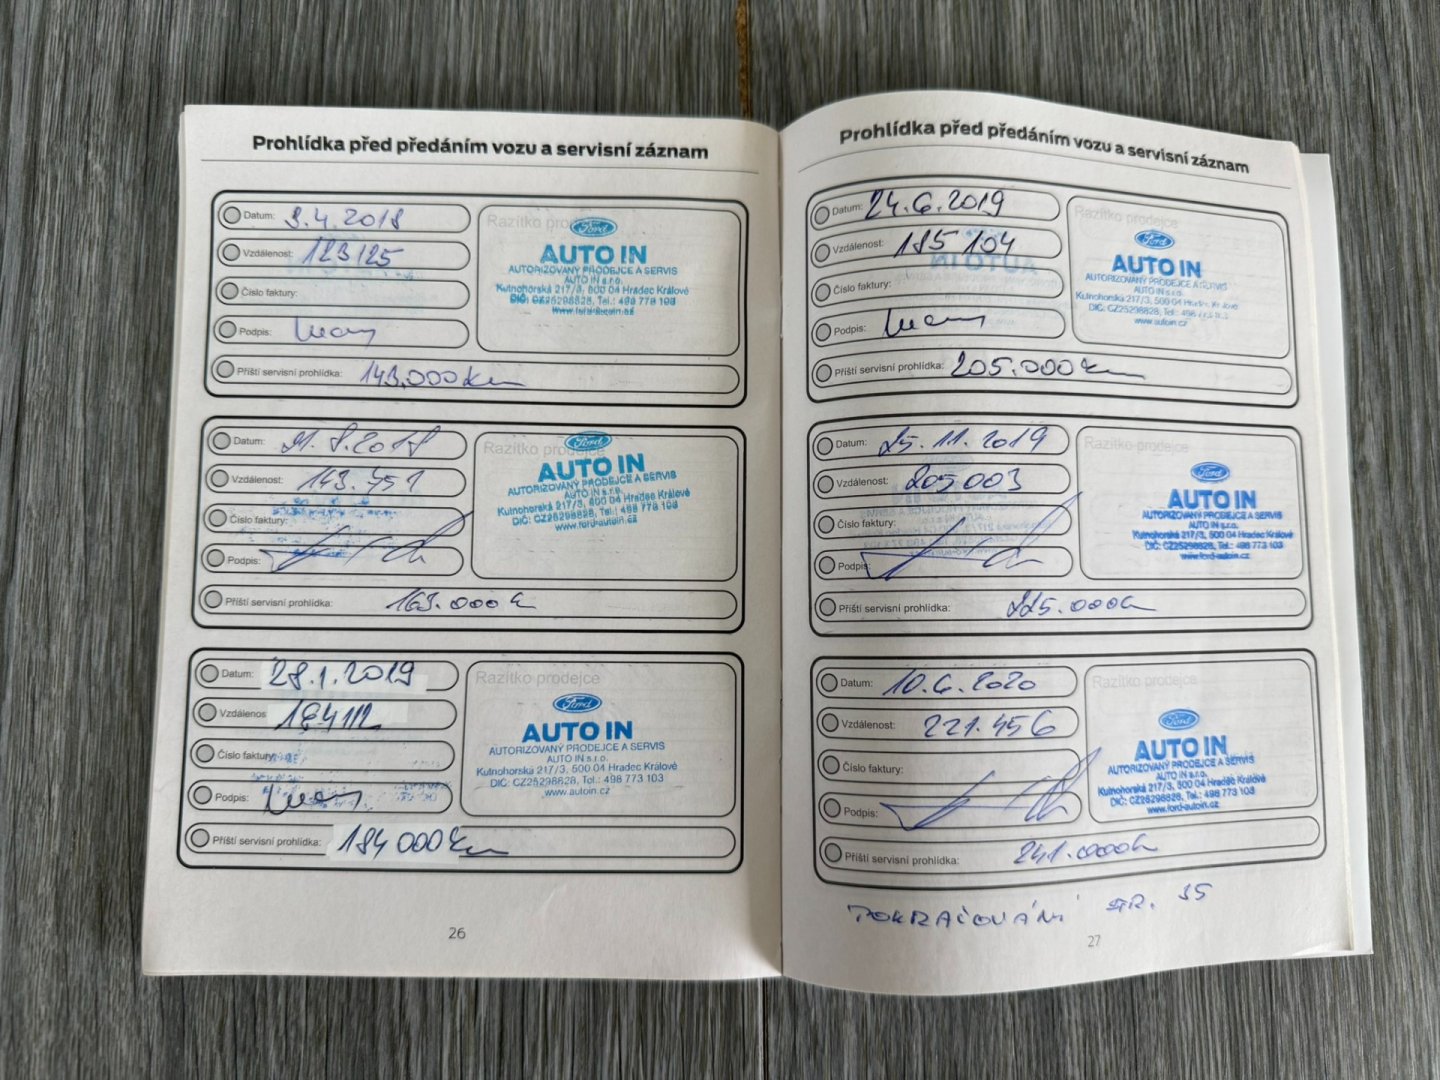 Prohlídka před předáním vozu a servisní záznam
Datum: 9.4.2018
Vzdálenost: 123125
Číslo faktury:
Podpis:
Příští servisní prohlídka: 143.000 km
Razítko prodejce
Ford
AUTO IN
AUTORIZOVANÝ PRODEJCE A SERVIS
AUTO IN s.r.o.
Kutnohorská 217/3, 500 04 Hradec Králové
DIČ: CZ25298828, Tel.: 498 773 103
www.ford-autoin.cz
Datum: 8.2018
Vzdálenost: 143.451
Číslo faktury:
Podpis:
Příští servisní prohlídka: 163.000 k
Razítko prodejce
Ford
AUTO IN
AUTORIZOVANÝ PRODEJCE A SERVIS
AUTO IN s.r.o.
Kutnohorská 217/3, 500 04 Hradec Králové
DIČ: CZ25298828, Tel.: 498 773 103
www.ford-autoin.cz
Datum: 28.1.2019
Vzdálenos
Číslo faktury:
Podpis:
Příští servisní prohlídka: 184 000 km
Razítko prodejce
Ford
AUTO IN
AUTORIZOVANÝ PRODEJCE A SERVIS
AUTO IN s.r.o.
Kutnohorská 217/3, 500 04 Hradec Králové
DIČ: CZ25298828, Tel.: 498 773 103
www.autoin.cz
26
Prohlídka před předáním vozu a servisní záznam
Datum: 24.6.2019
Vzdálenost: 185 104
Číslo faktury:
Podpis:
Příští servisní prohlídka: 205.000 km
Razítko prodejce
Ford
AUTO IN
AUTORIZOVANÝ PRODEJCE A SERVIS
AUTO IN s.r.o.
Kutnohorská 217/3, 500 04 Hradec Králové
DIČ: CZ25298828, Tel.: 498 773 103
www.autoin.cz
Datum: 25.11.2019
Vzdálenost: 205 003
Číslo faktury:
Podpis:
Příští servisní prohlídka: 225.000 k
Razítko prodejce
Ford
AUTO IN
AUTORIZOVANÝ PRODEJCE A SERVIS
AUTO IN s.r.o.
Kutnohorská 217/3, 500 04 Hradec Králové
DIČ: CZ25298828, Tel.: 498 773 103
www.ford-autoin.cz
Datum: 10.6.2020
Vzdálenost: 221.456
Číslo faktury:
Podpis:
Příští servisní prohlídka: 241.000 k
Razítko prodejce
Ford
AUTO IN
AUTORIZOVANÝ PRODEJCE A SERVIS
AUTO IN s.r.o.
Kutnohorská 217/3, 500 04 Hradec Králové
DIČ: CZ25298828, Tel.: 498 773 103
www.ford-autoin.cz
POKRAČOVÁNÍ STR. 35
27